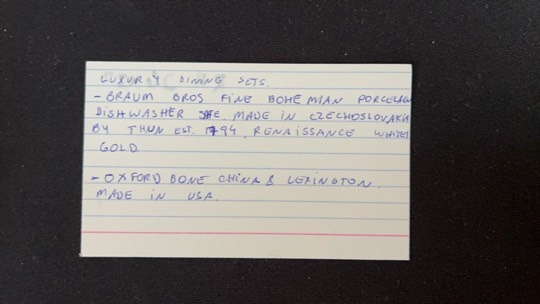 LUXURY DINING SETS.
- BRAUM BROS FINE BOHEMIAN PORCELAIN
DISHWASHER MADE IN CZECHOSLOVAKIA
BY THUN EST. 1794, RENAISSANCE WHITE
GOLD
- OXFORD BONE CHINA & LEXINGTON.
MADE IN USA.